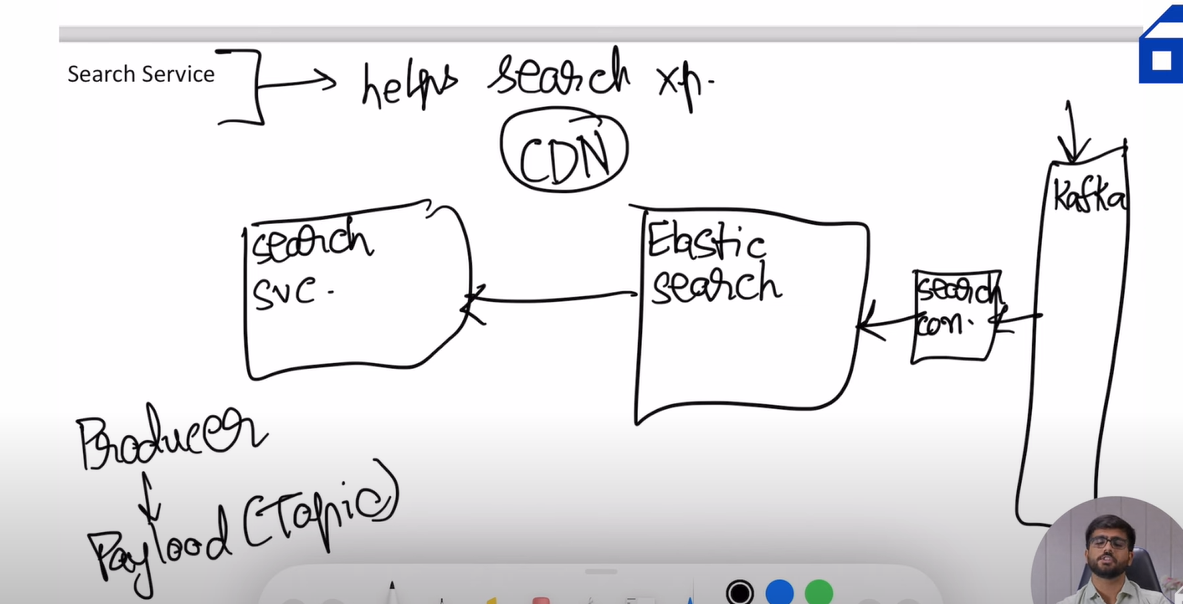 Search Service
helps search xp.
CDN
search
svc.
Elastic
search
search
con.
Kafka
Producer
Payload (Topic)